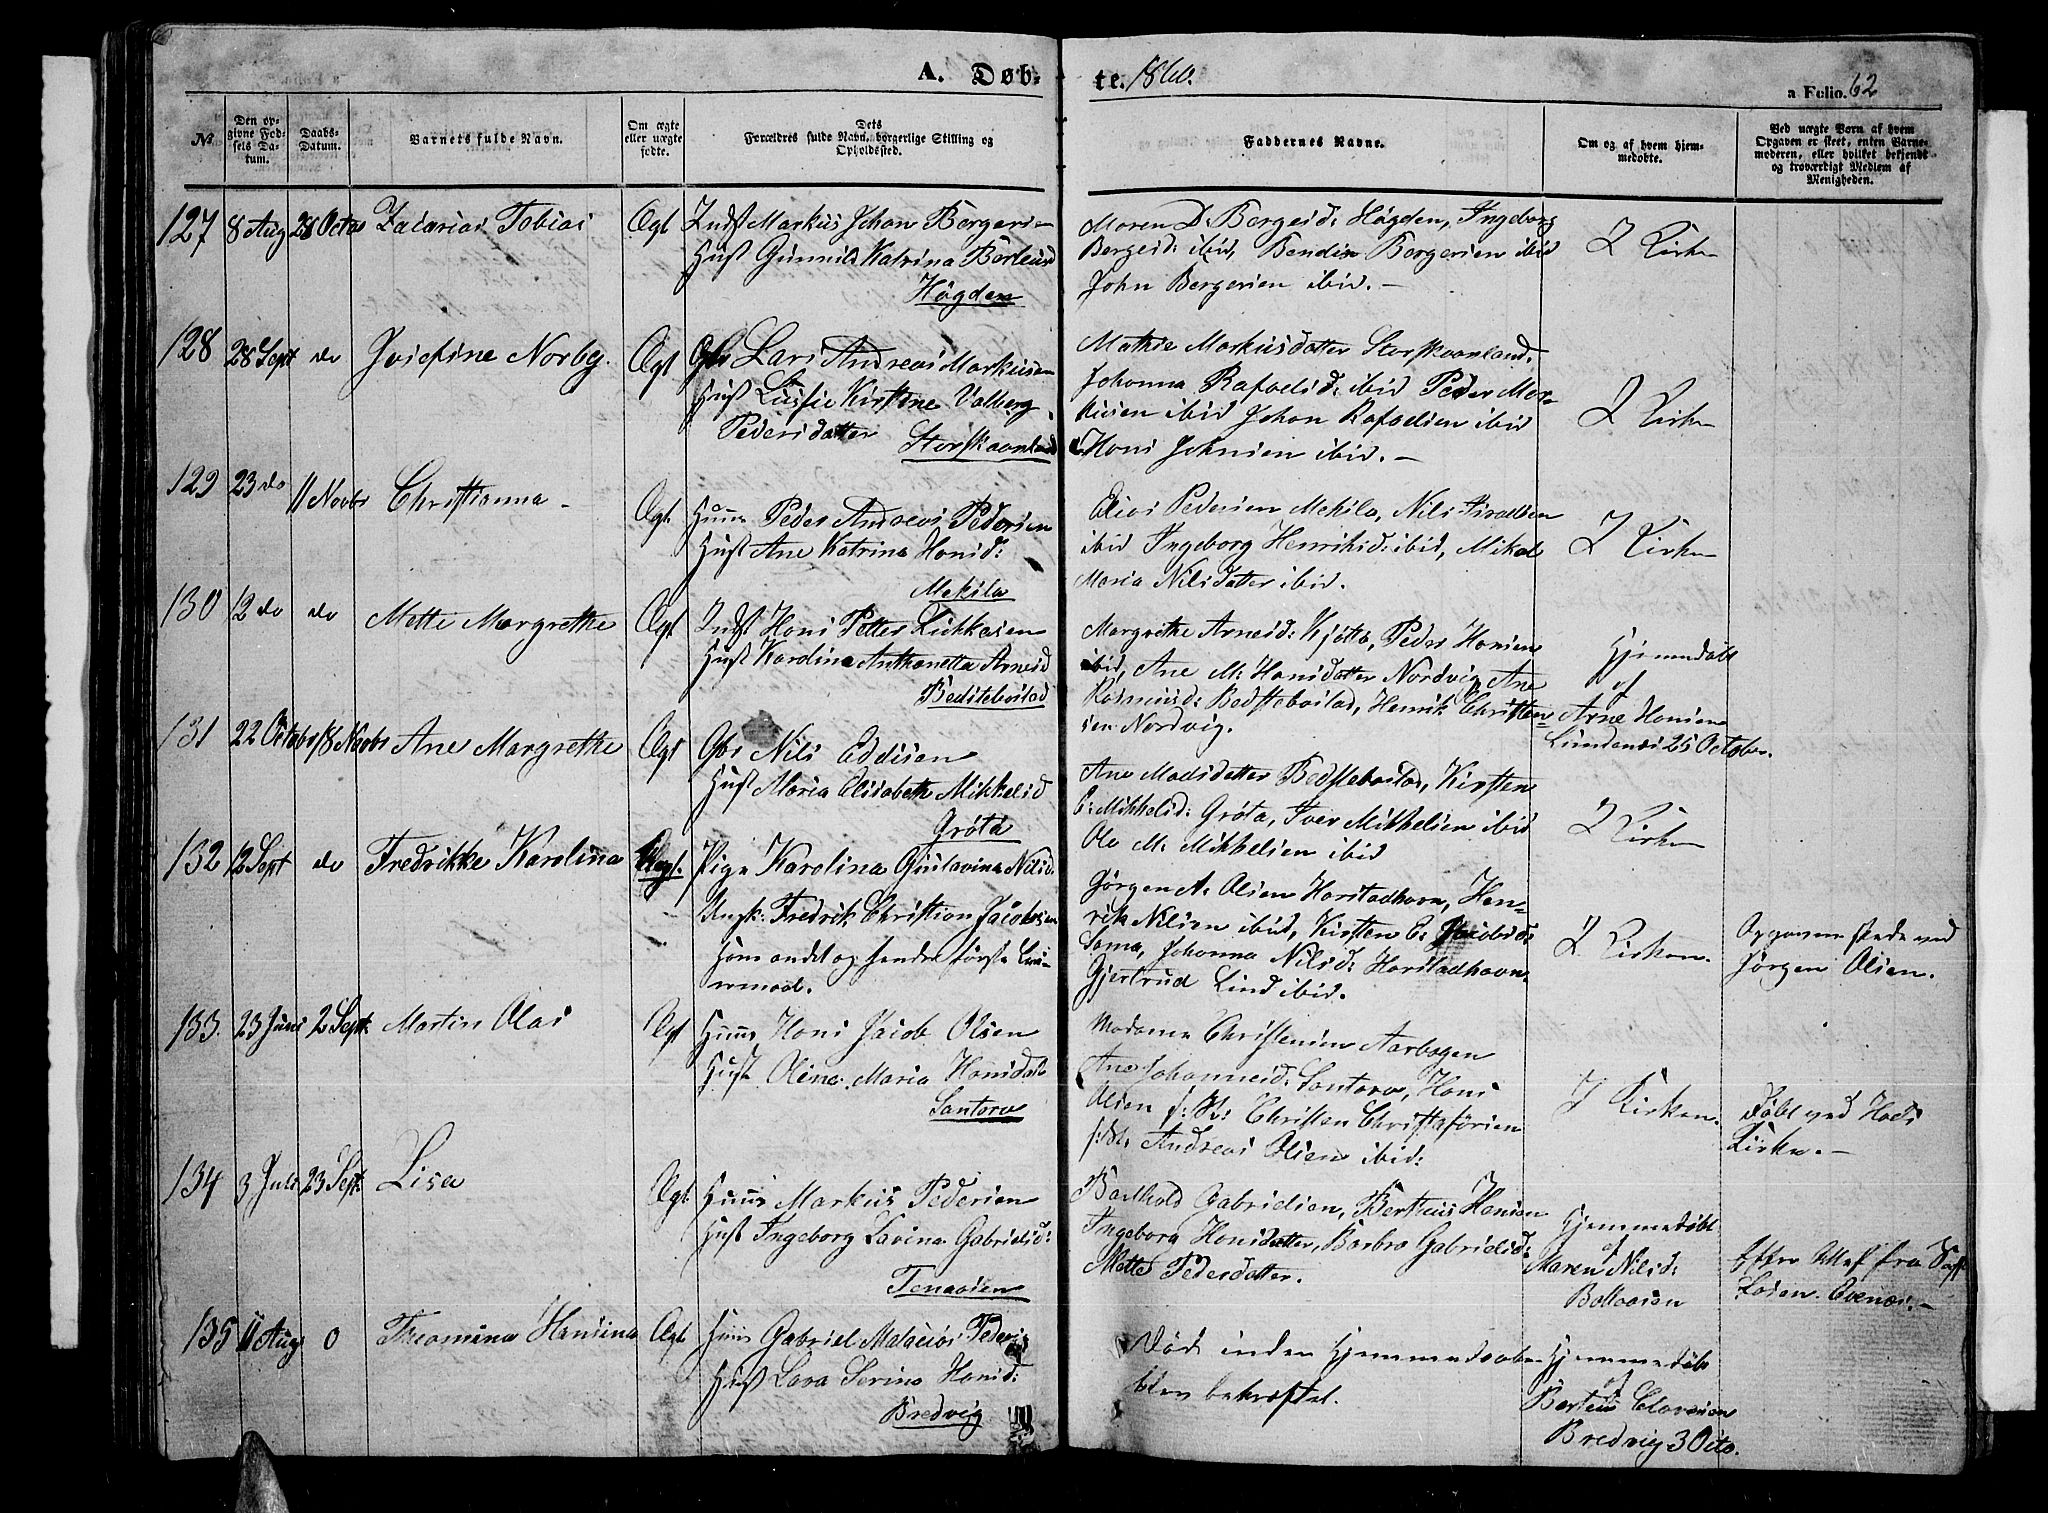 A. Døb- te. 1860.
a Folio. 62
№
Den opgivne Fødsels Datum.
Daabs-Datum.
Barnets fulde Navn.
Om ægte eller uægte fødte.
Forældres fulde Navn, Dets borgerlige Stilling og Opholdssted.
Faddernes Navne.
Om og af hvem hjemmedøbte.
Ved uægte Børn af hvem Opgaven er skeet, enten Barnemoderen, eller hvilket bekjendt og troværdigt Medlem af Menigheden.
127 8 Aug 28 Octo Zacarias Tobias Ægt Indst Markus Johan Bergersen
Hust Gunnild Katrina
Høgden
Maren D. Bergesd: Høgden, Ingeborg
Bergesd: ibid, Bendix Bergersen ibid
John Bergersen ibid. –
I Kirken
128 28 Sept do Josefine Norberg. Ægt Gbr Lars Andreas Markusen
Hust Lussie Kirstine Valberg
Pedersdatter Storskaanland
Mathie Markusdatter Storskaanland,
Johanna Rafaelsd: ibid Peder Mar-
kusen ibid Johan Rafaelsen ibid
Hans Johnsen ibid. –
I Kirken
129 23 do 11 Novbr Christianna – Ægt Huus Peder Andreas Pedersen
Hust Ane Katrina Hansd:
Mekila
Elias Pedersen Mekila, Nils Israelsen
ibid Ingeborg Henriksd: ibid, Mikal
Maria Nilsdatter ibid.
I Kirken
130 12 do do Mette Margrethe Ægt Indst Hans Petter Lukkasen
Hust Karolina Anthonetta Arnesd
Bedstebostad
Margrethe Arnesd: Kjøtta, Peder Hansen
ibid, Ane M: Hansdatter Nordvig Ane
Rasmusd: Bedstebostad, Henrik Christen-
sen Nordvig.
Hjemmedøbt
af
Arne Hansen
Lundenes 25 October.
131 22 Octobr 18 Novbr Ane Margrethe Ægt Gbr Nils Eddisen
Hust Maria Elisabeth Mikkelsd
Grøta
Ane Madsdatter Bedstebostad, Kirsten
E: Mikkelsd: Grøta, Iver Mikkelsen ibid
Ole M. Mikkelsen ibid
I Kirken
132 12 Sept do Fredrikke Karolina Uægt. Pige Karolina Gustavina Nilsd.
Ungk: Fredrik Christian Jacobsen
Hans andet og hendes første Lei-
ermaal.
Jørgen A. Olsen Harstadhavn, Hen-
rik Nilsen ibid, Kirsten E: Jacobsd:
Sama, Johanna Nilsd: Harstadhavn
Gjertrud Lind ibid.
I Kirken.
Opgaven skede ved
Jørgen Olsen.
133. 23 Juni 2 Sept. Martin Olai Ægt Huus Hans Jacob Olsen
Hust Olina Maria Hansdat
Santorv
Madame Christensen Aarbogen
Ane Johannesd: Santorv, Hans
Olsen Christen Christofersen
Andreas Olsen ibid:
I Kirken.
Døbt ved Hols
Kirke. –
134 3 Juli 23 Sept. Lisa Ægt. Huus Markus Pedersen
Hust Ingeborg Lavina Gabrielsd:
Tenaasen
Barthold Gabrielsen, Bertheus Hansen
Ingeborg Hansdatter, Barbro Gabrielsd:
Mette Pedersdatter.
Hjemmedøbt
af
Maren Nilsd:
Boltaasen
Efter Attest fra
Evenæs. –
135 11 Aug 0 Theomina Hansina Ægt. Huus Gabriel Malacias Peders
Hust Lava Serina Hansd:
Bredvig
Død inden Hjemmedaaben
blev bekræftet.
Hjemmedøbt
af
Berteus
Bredvig 3 Octo.